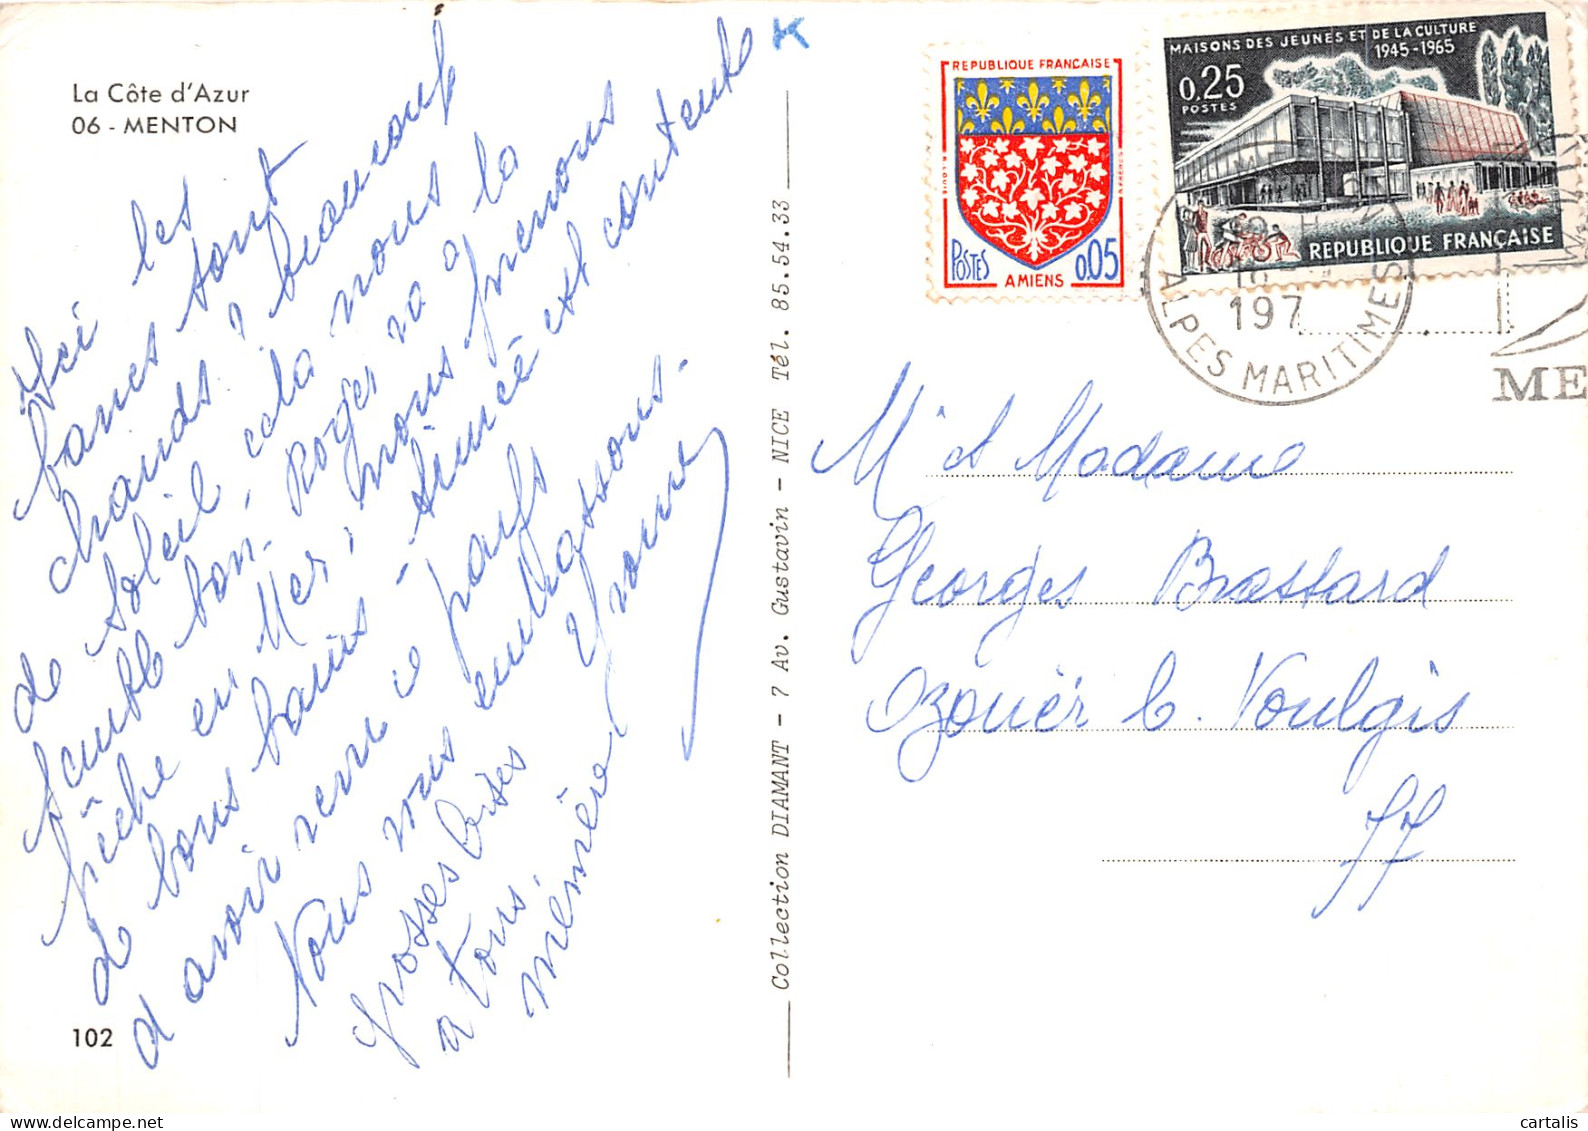 La Côte d'Azur
06 - MENTON
Ici les
bancs sont
chauds, beaucoup
de soleil, cela nous
semble bon. Roger va à la
pêche en Mer, nous prenons
de bons bains - Simcé est contente
d'avoir revu ce pays
Nous vous embrassons.
grosses bises
a tous.
mémère Yvonne
102
Collection DIAMANT - 7 Av. Gustavin - NICE Tél. 85.54.33
REPUBLIQUE FRANÇAISE
POSTES
0,05
AMIENS
MAISONS DES JEUNES ET DE LA CULTURE
1945-1965
0,25
POSTES
REPUBLIQUE FRANÇAISE
18
197
ALPES MARITIMES
ME
Mr et Madame
Georges Brassard
Ozouër le Voulgis
77
cartalis